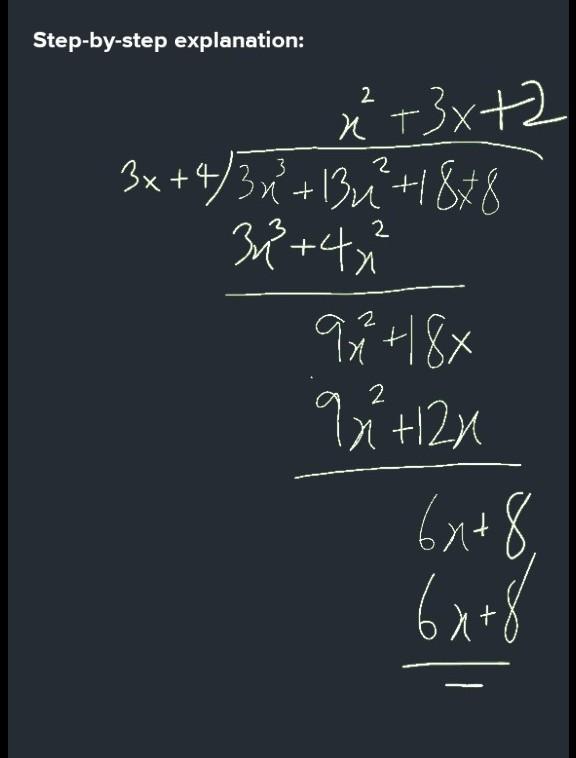 Step-by-step explanation:
x² + 3x + 2
3x + 4 / 3x³ + 13x² + 18x + 8
3x³ + 4x²
9x² + 18x
9x² + 12x
6x + 8
6x + 8